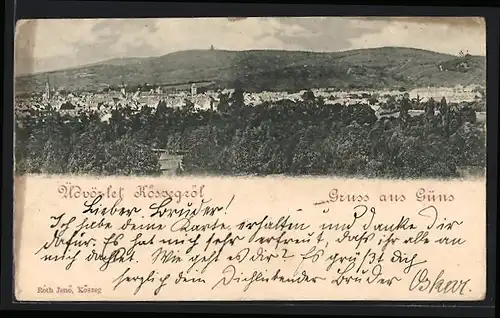 Üdvözlet Kőszegről
Gruss aus Güns
Lieber Bruder!
Ich habe deine Karte erhalten und Danke Dir
dafür. Es hat mich sehr erfreut, dass ihr alle an
mich dachtet. Wie geht es dir? Es grüßt dich
herzlich dem Dichliebender Bruder Oskar.
Róth Jenő, Kőszeg